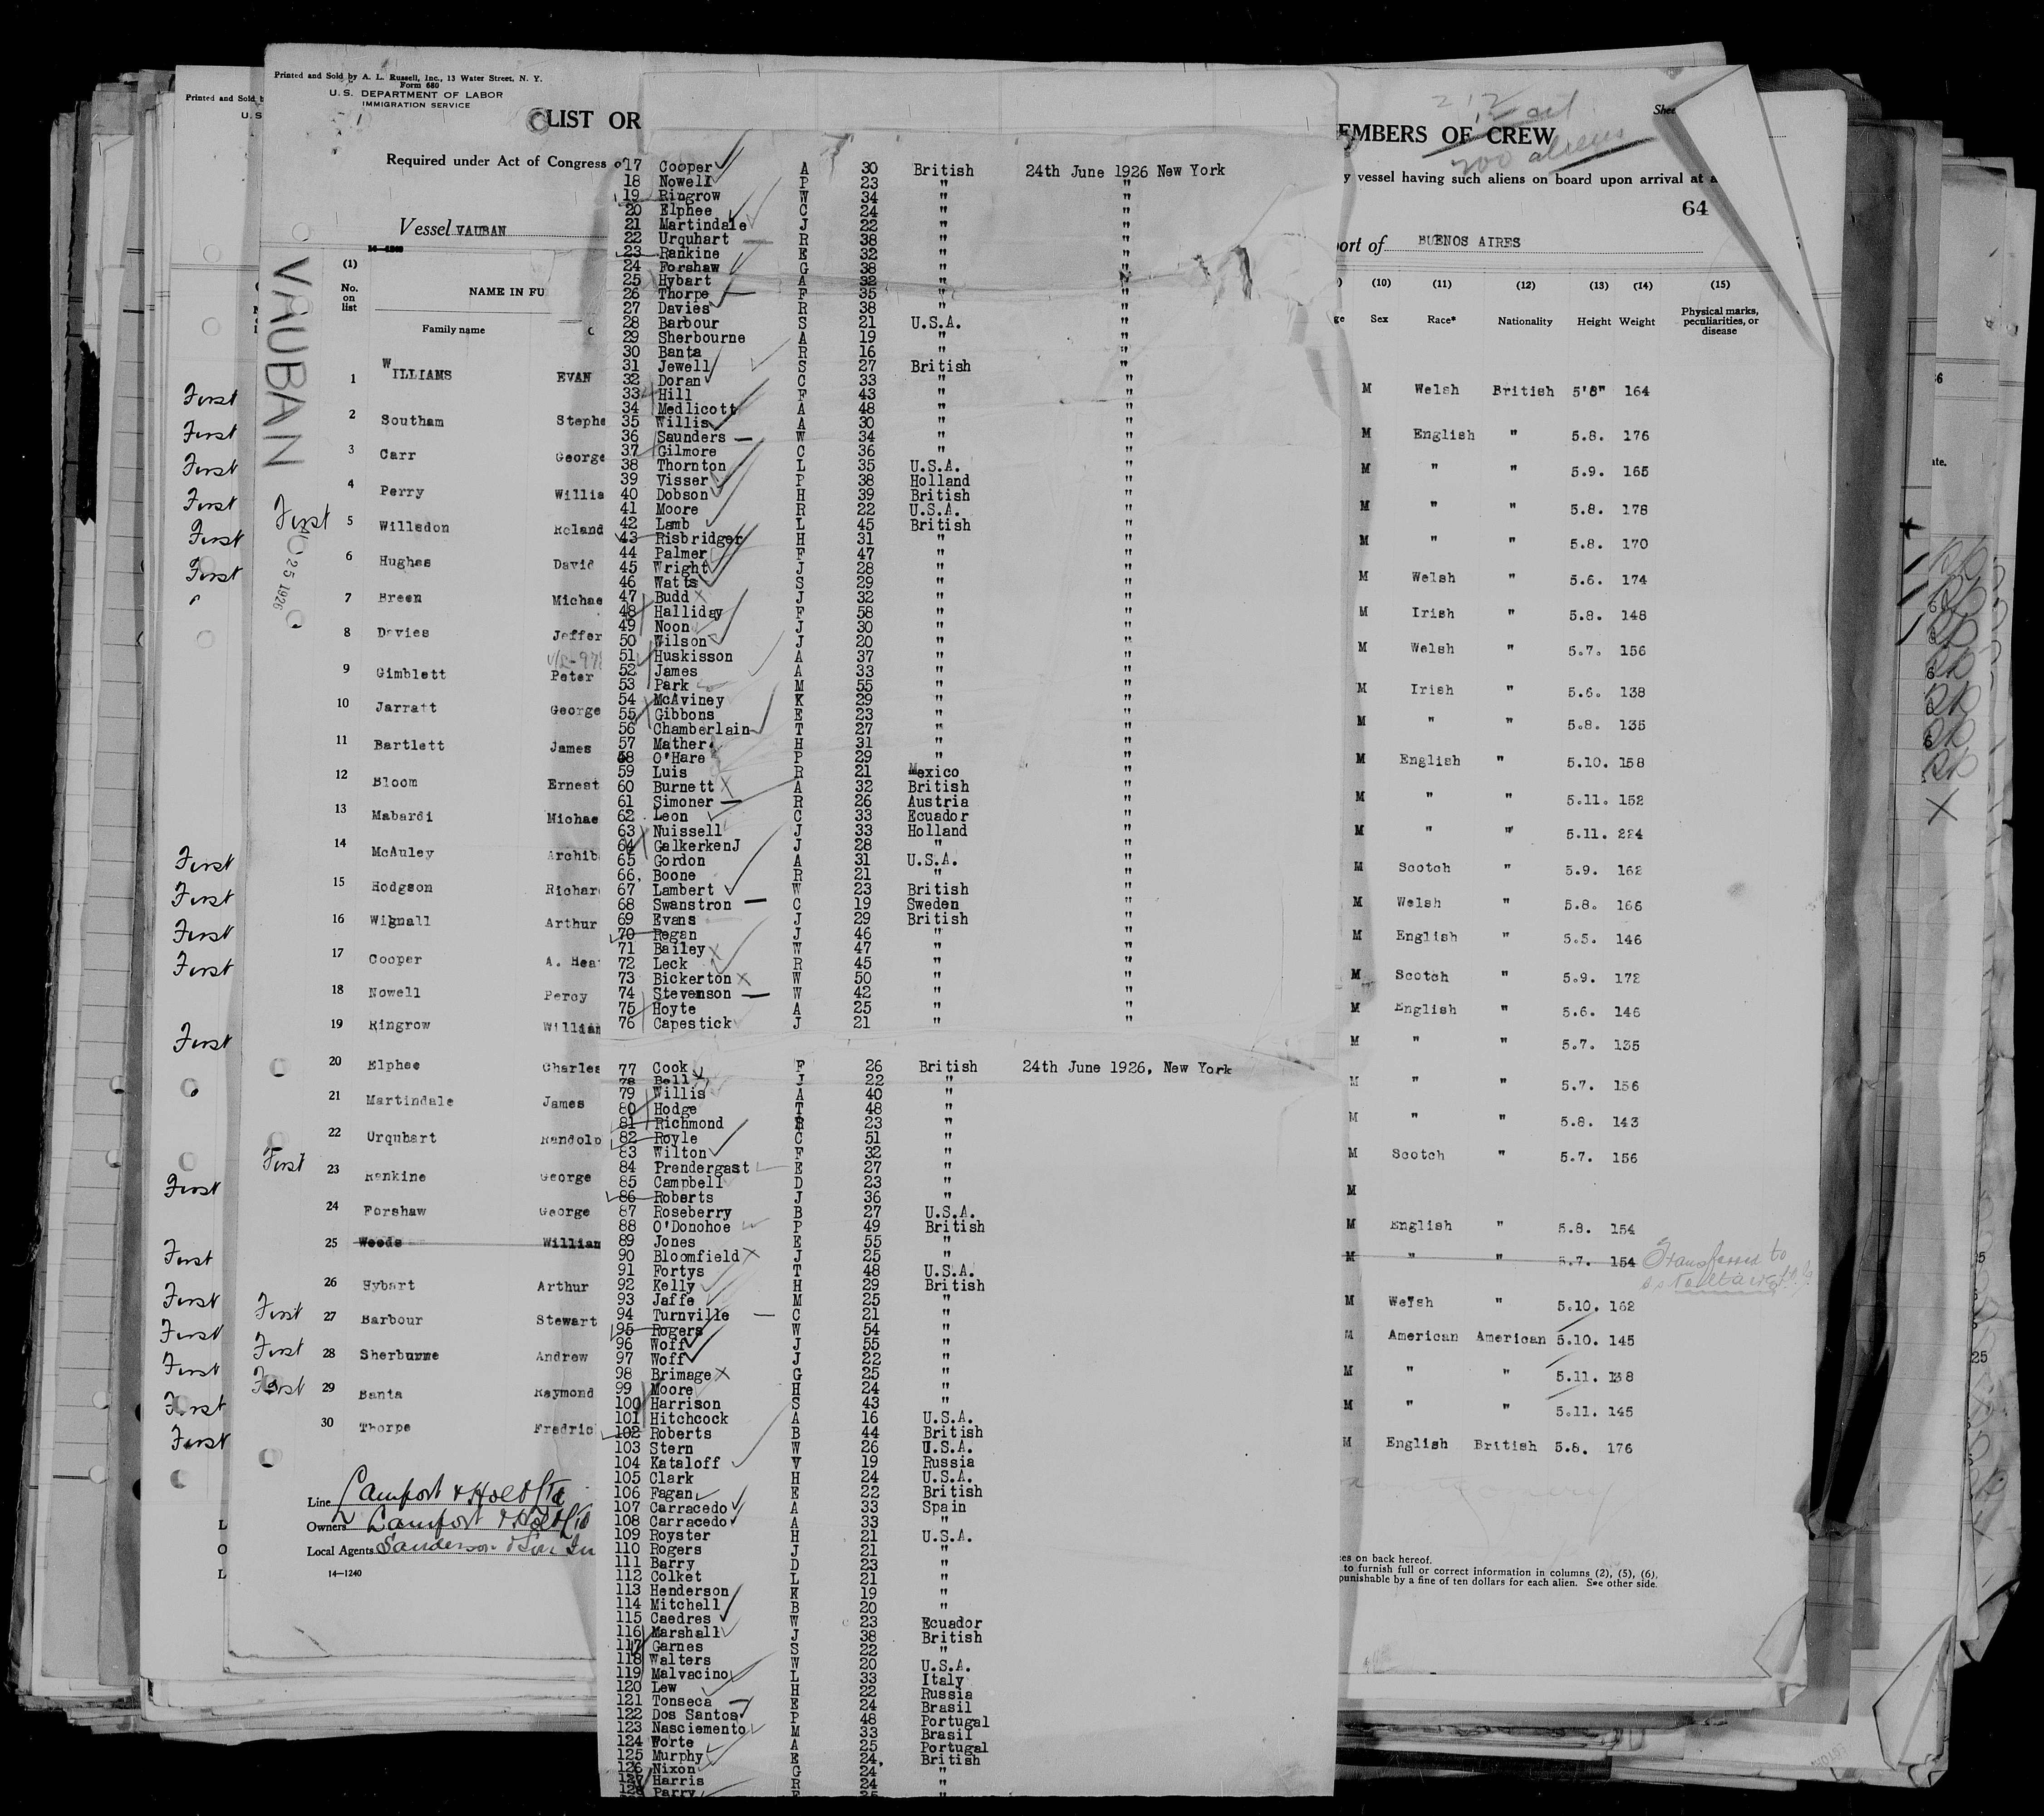 Printed and Sold by A. L. Russell, Inc., 13 Water Street, N. Y.
Form 680
U. S. DEPARTMENT OF LABOR
IMMIGRATION SERVICE
Printed and Sold b
U. S
LIST OR
EMBERS OF CREW
212 act
200 aliens
Shee
Required under Act of Congress o
y vessel having such aliens on board upon arrival at a
64
Vessel VAUBAN
port of BUENOS AIRES
VAUBAN
25 1926
(1) No. on list
NAME IN FU
Family name
(10) Sex (11) Race* (12) Nationality (13) Height (14) Weight (15) Physical marks, peculiarities, or disease
1 WILLIAMS EVAN M Welsh British 5'8" 164
First 2 Southam Stephe M English " 5.8. 176
First 3 Carr George M " " 5.9. 165
First 4 Perry Willia M " " 5.8. 178
First First 5 Willedon Roland M " " 5.8. 170
First 6 Hughes David M Welsh " 5.6. 174
First 7 Breen Michae M Irish " 5.8. 148
8 Davies Jeffer M Welsh " 5.7. 156
9 Gimblett Peter M Irish " 5.6. 138
10 Jarratt George M " " 5.8. 135
11 Bartlett James M English " 5.10. 158
12 Bloom Ernest M " " 5.11. 152
13 Mabardi Michae M " " 5.11. 224
First 14 McAuley Archib M Scotch " 5.9. 162
First 15 Hodgson Richar M Welsh " 5.8. 166
First 16 Wignall Arthur M English " 5.5. 146
First 17 Cooper A. Hea M Scotch " 5.9. 172
18 Nowell Percy M English " 5.6. 146
First 19 Ringrow William M " " 5.7. 135
20 Elphee Charles M " " 5.7. 156
21 Martindale James M " " 5.8. 143
22 Urquhart Randolp M Scotch " 5.7. 156
First First 23 Rankine George M
24 Forshaw George M English " 5.8. 154
First 25 Woods William M " " 5.7. 154 Transferred to
26 Hybart Arthur M Welsh " 5.10. 162
First First 27 Barbour Stewart M American American 5.10. 145
First First 28 Sherburne Andrew M " " 5.11. 138
First First 29 Banta Raymond M " " 5.11. 145
First 30 Thorpe Fredric M English British 5.8. 176
Line Lamport & Holt Ltd
Owners Lamport & Holt Ltd
Local Agents Sanderson & Son In
14—1240
es on back hereof.
to furnish full or correct information in columns (2), (5), (6).
punishable by a fine of ten dollars for each alien. See other side.
17 Cooper A 30 British 24th June 1926 New York
18 Nowell P 23 " "
19 Ringrow W 34 " "
20 Elphee C 24 " "
21 Martindale J 22 " "
22 Urquhart R 38 " "
23 Rankine E 32 " "
24 Forshaw G 38 " "
25 Hybart A 32 " "
26 Thorpe F 35 " "
27 Davies R 38 " "
28 Barbour S 21 U.S.A. "
29 Sherbourne A 19 " "
30 Banta R 16 " "
31 Jewell S 27 British "
32 Doran C 33 " "
33 Hill F 43 " "
34 Medlicott A 48 " "
35 Willis A 30 " "
36 Saunders W 34 " "
37 Gilmore C 36 " "
38 Thornton L 35 U.S.A. "
39 Visser P 38 Holland "
40 Dobson H 39 British "
41 Moore R 22 U.S.A. "
42 Lamb L 45 British "
43 Risbridger H 31 " "
44 Palmer F 47 " "
45 Wright J 28 " "
46 Watts S 29 " "
47 Budd J 32 " "
48 Halliday F 58 " "
49 Noon J 30 " "
50 Wilson J 20 " "
51 Huskisson A 37 " "
52 James A 33 " "
53 Park M 55 " "
54 McAviney K 29 " "
55 Gibbons E 23 " "
56 Chamberlain T 27 " "
57 Mather H 31 " "
58 O'Hare P 29 " "
59 Luis R 21 Mexico "
60 Burnett A 32 British "
61 Simoner R 26 Austria "
62 Leon C 33 Ecuador "
63 Nuissell J 33 Holland "
64 GalkerkenJ J 28 " "
65 Gordon A 31 U.S.A. "
66. Boone R 21 " "
67 Lambert W 23 British "
68 Swanstron C 19 Sweden "
69 Evans J 29 British "
70 Regan J 46 " "
71 Bailey W 47 " "
72 Leck R 45 " "
73 Bickerton W 50 " "
74 Stevenson W 42 " "
75 Hoyte A 25 " "
76 Capestick J 21 " "
77 Cook F 26 British 24th June 1926, New York
78 Bell J 22 "
79 Willis A 40 "
80 Hodge T 48 "
81 Richmond R 23 "
82 Royle C 51 "
83 Wilton F 32 "
84 Prendergast E 27 "
85 Campbell D 23 "
86 Roberts J 36 "
87 Roseberry B 27 U.S.A.
88 O'Donohoe P 49 British
89 Jones E 55 "
90 Bloomfield J 25 "
91 Fortys T 48 U.S.A.
92 Kelly H 29 British
93 Jaffe M 25 "
94 Turnville C 21 "
95 Rogers W 54 "
96 Woff J 55 "
97 Woff J 22 "
98 Brimage G 25 "
99 Moore H 24 "
100 Harrison S 43 "
101 Hitchcock A 16 U.S.A.
102 Roberts B 44 British
103 Stern W 26 U.S.A.
104 Kataloff V 19 Russia
105 Clark H 24 U.S.A.
106 Fagan E 22 British
107 Carracedo A 33 Spain
108 Carracedo A 33 "
109 Royster H 21 U.S.A.
110 Rogers J 21 "
111 Barry D 23 "
112 Colket L 21 "
113 Henderson K 19 "
114 Mitchell B 20 "
115 Caedres W 23 Ecuador
116 Marshall J 38 British
117 Garnes S 22 "
118 Walters W 20 U.S.A.
119 Malvacino L 33 Italy
120 Lew H 22 Russia
121 Tonseca E 24 Brasil
122 Dos Santos P 48 Portugal
123 Nasciemento M 33 Brasil
124 Forte A 25 Portugal
125 Murphy E 24. British
126 Nixon G 24 "
127 Harris R 24 "
Parry